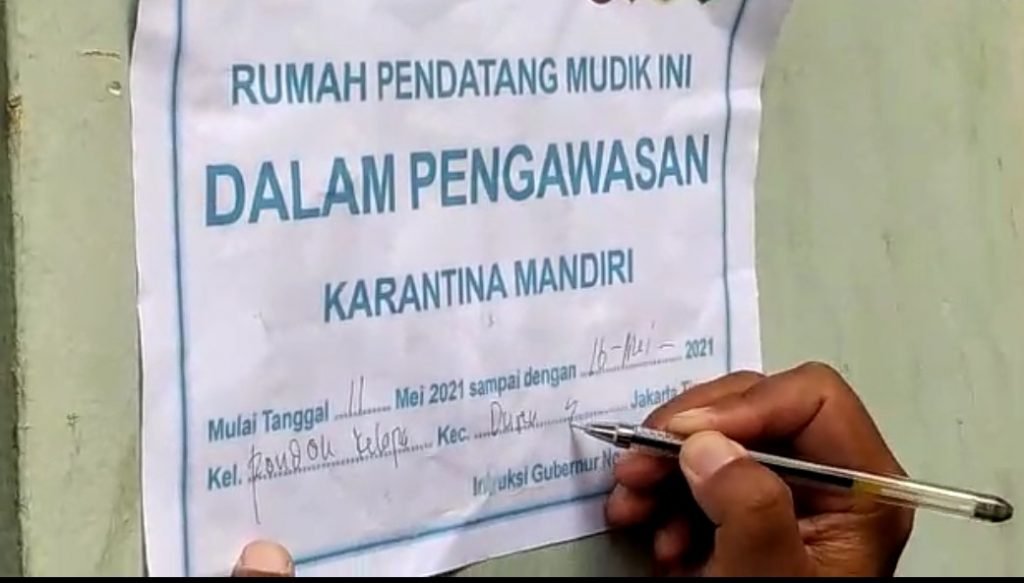 RUMAH PENDATANG MUDIK INI
DALAM PENGAWASAN
KARANTINA MANDIRI
Mulai Tanggal 11 Mei 2021 sampai dengan 16-Mei- 2021
Kel. Pondok Kelapa Kec. Duren S Jakarta
Intruksi Gubernur